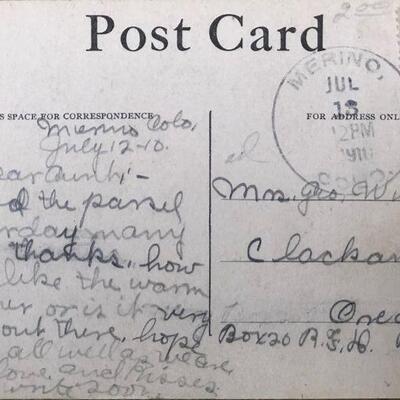 2.00
Post Card
S SPACE FOR CORRESPONDENCE
FOR ADDRESS ONL
MERINO,
JUL
13
12PM
1910
COLO.
Merino Colo,
July 12-10.
ear Aunt:-
d the parsel
rday many
thanks, how
like the warm
er or is it very
out there, hope
all well as we are
love and kisses
write soon,
Mrs. Geo. W
Clackam
Ore
Box 20 R.F.D.